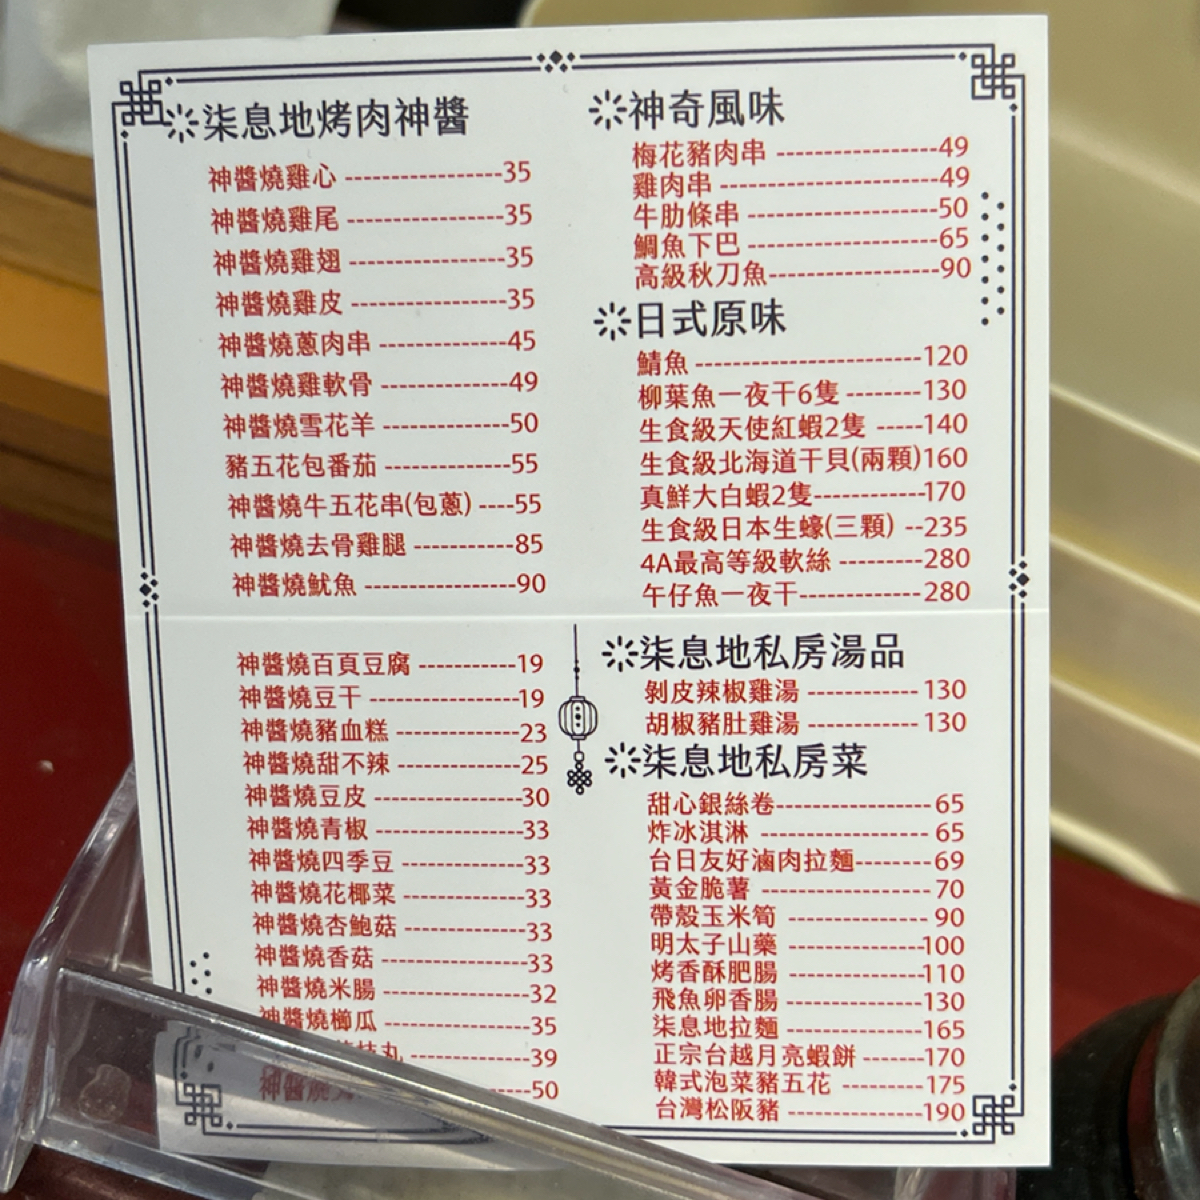 柒息地烤肉神醬
神醬燒雞心 ------------------35
神醬燒雞尾 ------------------35
神醬燒雞翅 ------------------35
神醬燒雞皮 ------------------35
神醬燒蔥肉串 ---------------45
神醬燒雞軟骨 ---------------49
神醬燒雪花羊 ---------------50
豬五花包番茄 ---------------55
神醬燒牛五花串(包蔥) ----55
神醬燒去骨雞腿 ------------85
神醬燒魷魚 ------------------90
神醬燒百頁豆腐 -----------19
神醬燒豆干 ------------------19
神醬燒豬血糕 ---------------23
神醬燒甜不辣 ---------------25
神醬燒豆皮 ------------------30
神醬燒青椒 ------------------33
神醬燒四季豆 ---------------33
神醬燒花椰菜 ---------------33
神醬燒杏鮑菇 ---------------33
神醬燒香菇 ------------------33
神醬燒米腸 ------------------32
神醬燒櫛瓜 ------------------35
丸 ---------------39
神醬燒 ----50
神奇風味
梅花豬肉串 ------------------49
雞肉串 ------------------------49
牛肋條串 ---------------------50
鯛魚下巴 ---------------------65
高級秋刀魚-------------------90
日式原味
鯖魚 -------------------------120
柳葉魚一夜干6隻 --------130
生食級天使紅蝦2隻 -----140
生食級北海道干貝(兩顆)160
真鮮大白蝦2隻------------170
生食級日本生蠔(三顆) --235
4A最高等級軟絲 ---------280
午仔魚一夜干-------------280
柒息地私房湯品
剝皮辣椒雞湯 ------------ 130
胡椒豬肚雞湯 ------------ 130
柒息地私房菜
甜心銀絲卷----------------- 65
炸冰淇淋 ------------------- 65
台日友好滷肉拉麵-------- 69
黃金脆薯 ------------------- 70
帶殼玉米筍 ---------------- 90
明太子山藥 ---------------100
烤香酥肥腸 ---------------110
飛魚卵香腸 ---------------130
柒息地拉麵 ---------------165
正宗台越月亮蝦餅 -------170
韓式泡菜豬五花 ---------175
台灣松阪豬 ---------------190